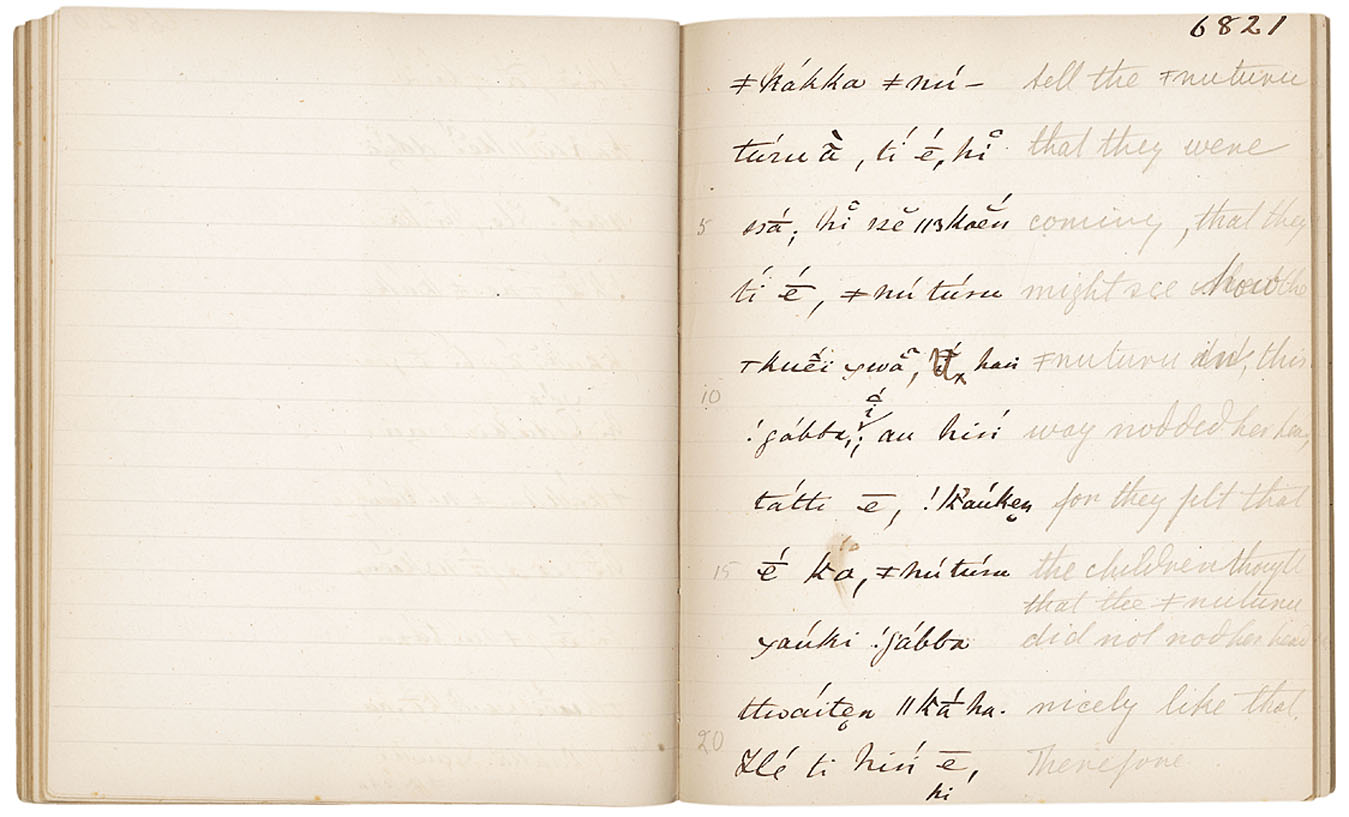 6821
ǂkákka ǂnú- tell the ǂnuturu
túru ā̀, tí é̄, hĭ̃ that they were
5 ssā́; hĭ̃ sĕ ǁkoĕ́n coming, that they
tí é̄, ǂnútúru might see how the
χwā̃, han ǂnuturu in this
10 !gábba, au hiń way nodded her head,
tátti ē, !kaúkǝn for they felt that
15 é̄ ká, ǂnútúru the children thought
that the ǂnuturu
χaúki !gábba did not nod her head
ttwáitǝn ǁkā́ ha. nicely like that.
20 Hé ti hiń ē, Therefore
hi